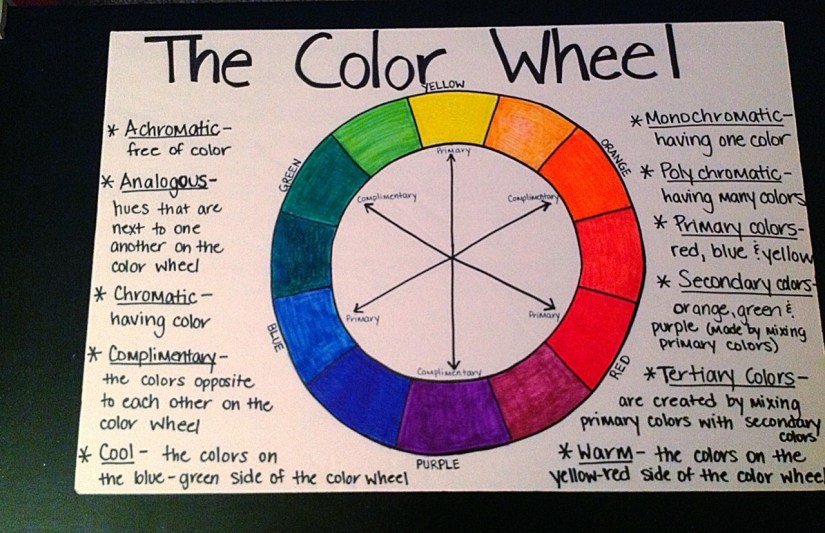 The Color Wheel
* Achromatic-
free of color
* Analogous-
hues that are
next to one
another on the
color wheel
* Chromatic-
having color
* Complimentary-
the colors opposite
to each other on the
color wheel
* Cool - the colors on
the blue-green side of the color wheel
YELLOW
ORANGE
RED
PURPLE
BLUE
GREEN
Primary
Complimentary
Complimentary
Primary
Primary
Complimentary
* Monochromatic-
having one color
* Polychromatic-
having many colors
* Primary colors-
red, blue & yellow
* Secondary colors-
orange, green &
purple (made by mixing
primary colors)
* Tertiary Colors-
are created by mixing
primary colors with secondary
colors
* Warm - the colors on the
yellow-red side of the color wheel